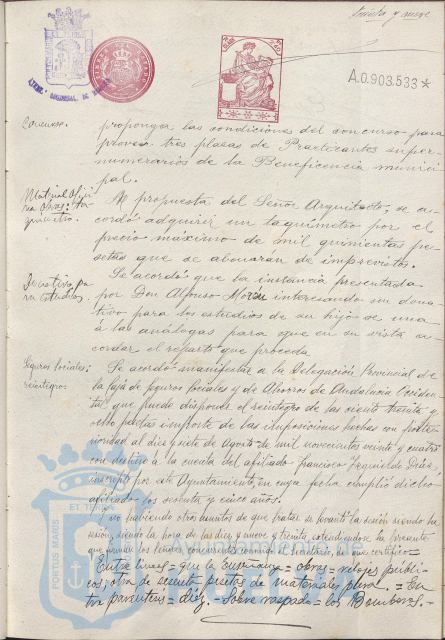 treinta y nueve
A.0.903.533*
Concurso.
propongan las condiciones del concurso para
proveer tres plazas de Practicantes super-
numerarios de la Beneficencia munici-
pal.
Material ofici-
na obras: ta-
químetro.
A propuesta del Señor Arquitecto, se a-
cordó adquirir un taquímetro por el
precio máximo de mil quinientas pe-
setas que se abonarán de imprevistos.
Donativo pa-
ra estudios.
Se acordó que la instancia presentada
por Don Alfonso interesando un dona-
tivo para los estudios de su hijo se una
á las análogas para que en su vista a-
cordar el reparto que proceda.
Seguros sociales:
reintegro.
Se acordó manifestar a la Delegación Provincial de
la Caja de Seguros Sociales y de Ahorros de Andalucía Occiden-
tal que puede disponer el reintegro de las ciento treinta y
ocho pesetas importe de las imposiciones hechas con poste-
rioridad al diez y siete de Agosto de mil novecientos veinte y cuatro
con destino a la cuenta del afiliado Francisco Izquierdo Díaz,
inscripto por este Ayuntamiento, en cuya fecha cumplió dicho
afiliado los sesenta y cinco años.
Y no habiendo otros asuntos de que tratar se levantó la sesión siendo
la hora de las diez y nueve y treinta, extendiéndose la presente
que firman los señores concurrentes conmigo el Secretario, de que certifico=
Entre líneas = que la enseñanza = obras = relojes públi-
cos, otra de sesenta pesetas de materiales para. = En-
tre paréntesis = diez. = Sobre raspado = los Bomberos. =
PORTUS MARIS
ET TERRAE